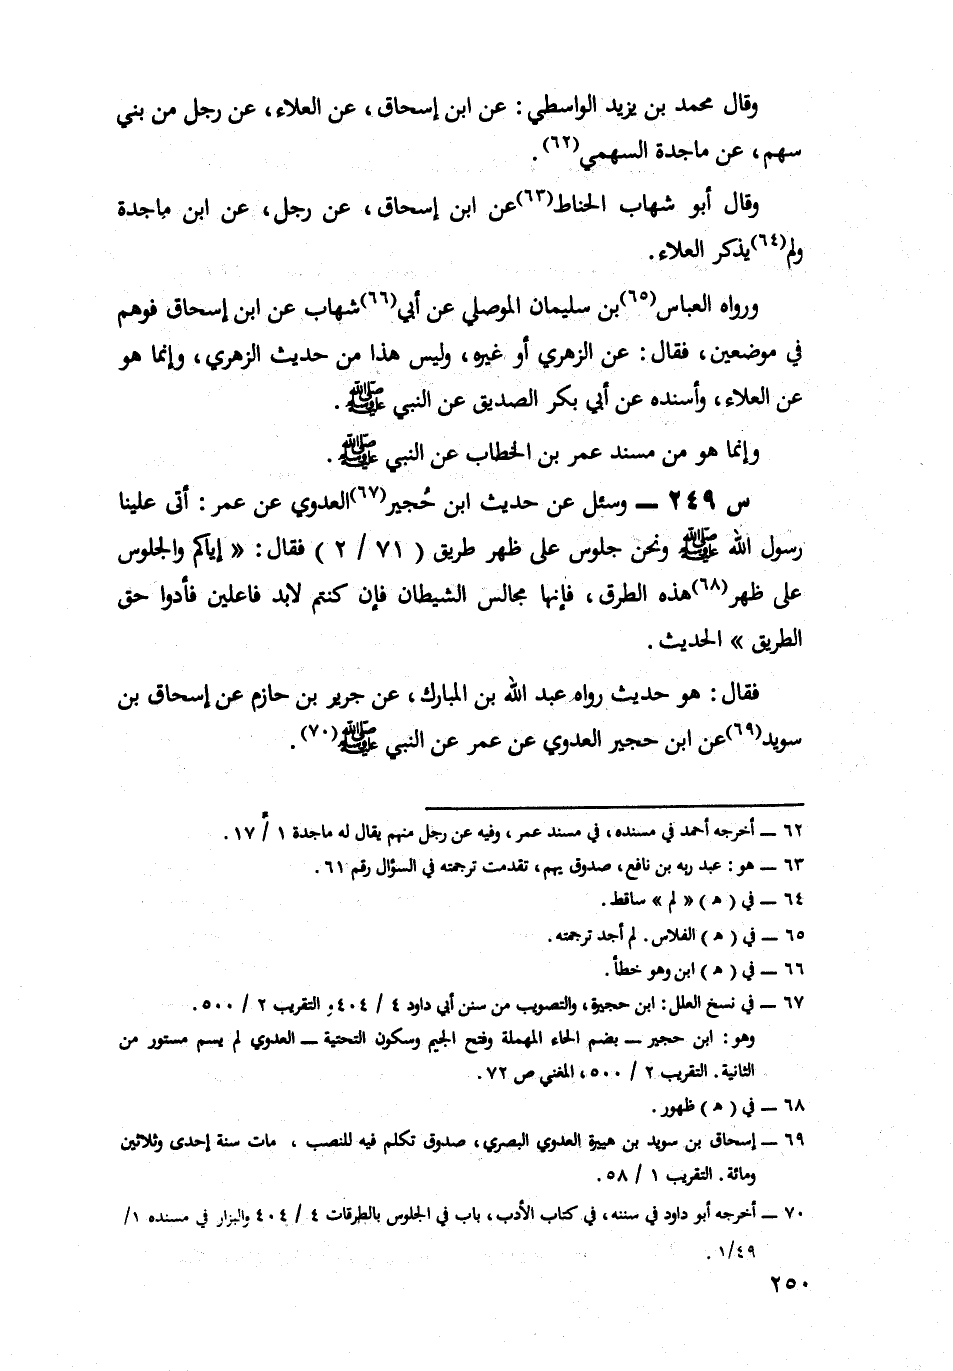 وقال محمد بن يزيد الواسطي : عن ابن إسحاق ، عن العلاء ، عن رجل من بني
سهم ، عن ماجدة السهمي(٦٢) .
وقال أبو شهاب الحناط(٦٣)عن ابن إسحاق ، عن رجل ، عن ابن ماجدة
ولم(٦٤)يذكر العلاء .
ورواه العباس(٦٥)بن سليمان الموصلي عن أبي(٦٦)شهاب عن ابن إسحاق فوهم
في موضعين ، فقال : عن الزهري أو غيره ، وليس هذا من حديث الزهري ، وإنما هو
عن العلاء ، وأسنده عن أبي بكر الصديق عن النبي ﷺ .
وإنما هو من مسند عمر بن الخطاب عن النبي ﷺ .
س ٢٤٩ — وسئل عن حديث ابن حُجير(٦٧)العدوي عن عمر : أتى علينا
رسول الله ﷺ ونحن جلوس على ظهر طريق ( ٧١ / ٢ ) فقال : « إياكم والجلوس
على ظهر(٦٨)هذه الطرق ، فإنها مجالس الشيطان فإن كنتم لابد فاعلين فأدوا حق
الطريق » الحديث .
فقال : هو حديث رواه عبد الله بن المبارك ، عن جرير بن حازم عن إسحاق بن
سويد(٦٩)عن ابن حجير العدوي عن عمر عن النبي ﷺ(٧٠) .
٦٢ — أخرجه أحمد في مسنده ، في مسند عمر ، وفيه عن رجل منهم يقال له ماجدة ١ / ١٧ .
٦٣ — هو : عبد ربه بن نافع ، صدوق يهم ، تقدمت ترجمته في السؤال رقم ٦١ .
٦٤ — في ( هـ ) « لم » ساقط .
٦٥ — في ( هـ ) الفلاس . لم أجد ترجمته .
٦٦ — في ( هـ ) ابن وهو خطأ .
٦٧ — في نسخ العلل : ابن حجيرة ، والتصويب من سنن أبي داود ٤ / ٤٠٤ و التقريب ٢ / ٥٠٠ .
وهو : ابن حجير — بضم الحاء المهملة وفتح الجيم وسكون التحتية — العدوي لم يسم مستور من
الثانية . التقريب ٢ / ٥٠٠ ، المغني ص ٧٢ .
٦٨ — في ( هـ ) ظهور .
٦٩ — إسحاق بن سويد بن هبيرة العدوي البصري ، صدوق تكلم فيه للنصب ، مات سنة إحدى وثلاثين
ومائة . التقريب ١ / ٥٨ .
٧٠ — أخرجه أبو داود في سننه ، في كتاب الأدب ، باب في الجلوس بالطرقات ٤ / ٤٠٤ والبزار في مسنده ١/
١/٤٩ .
٢٥٠